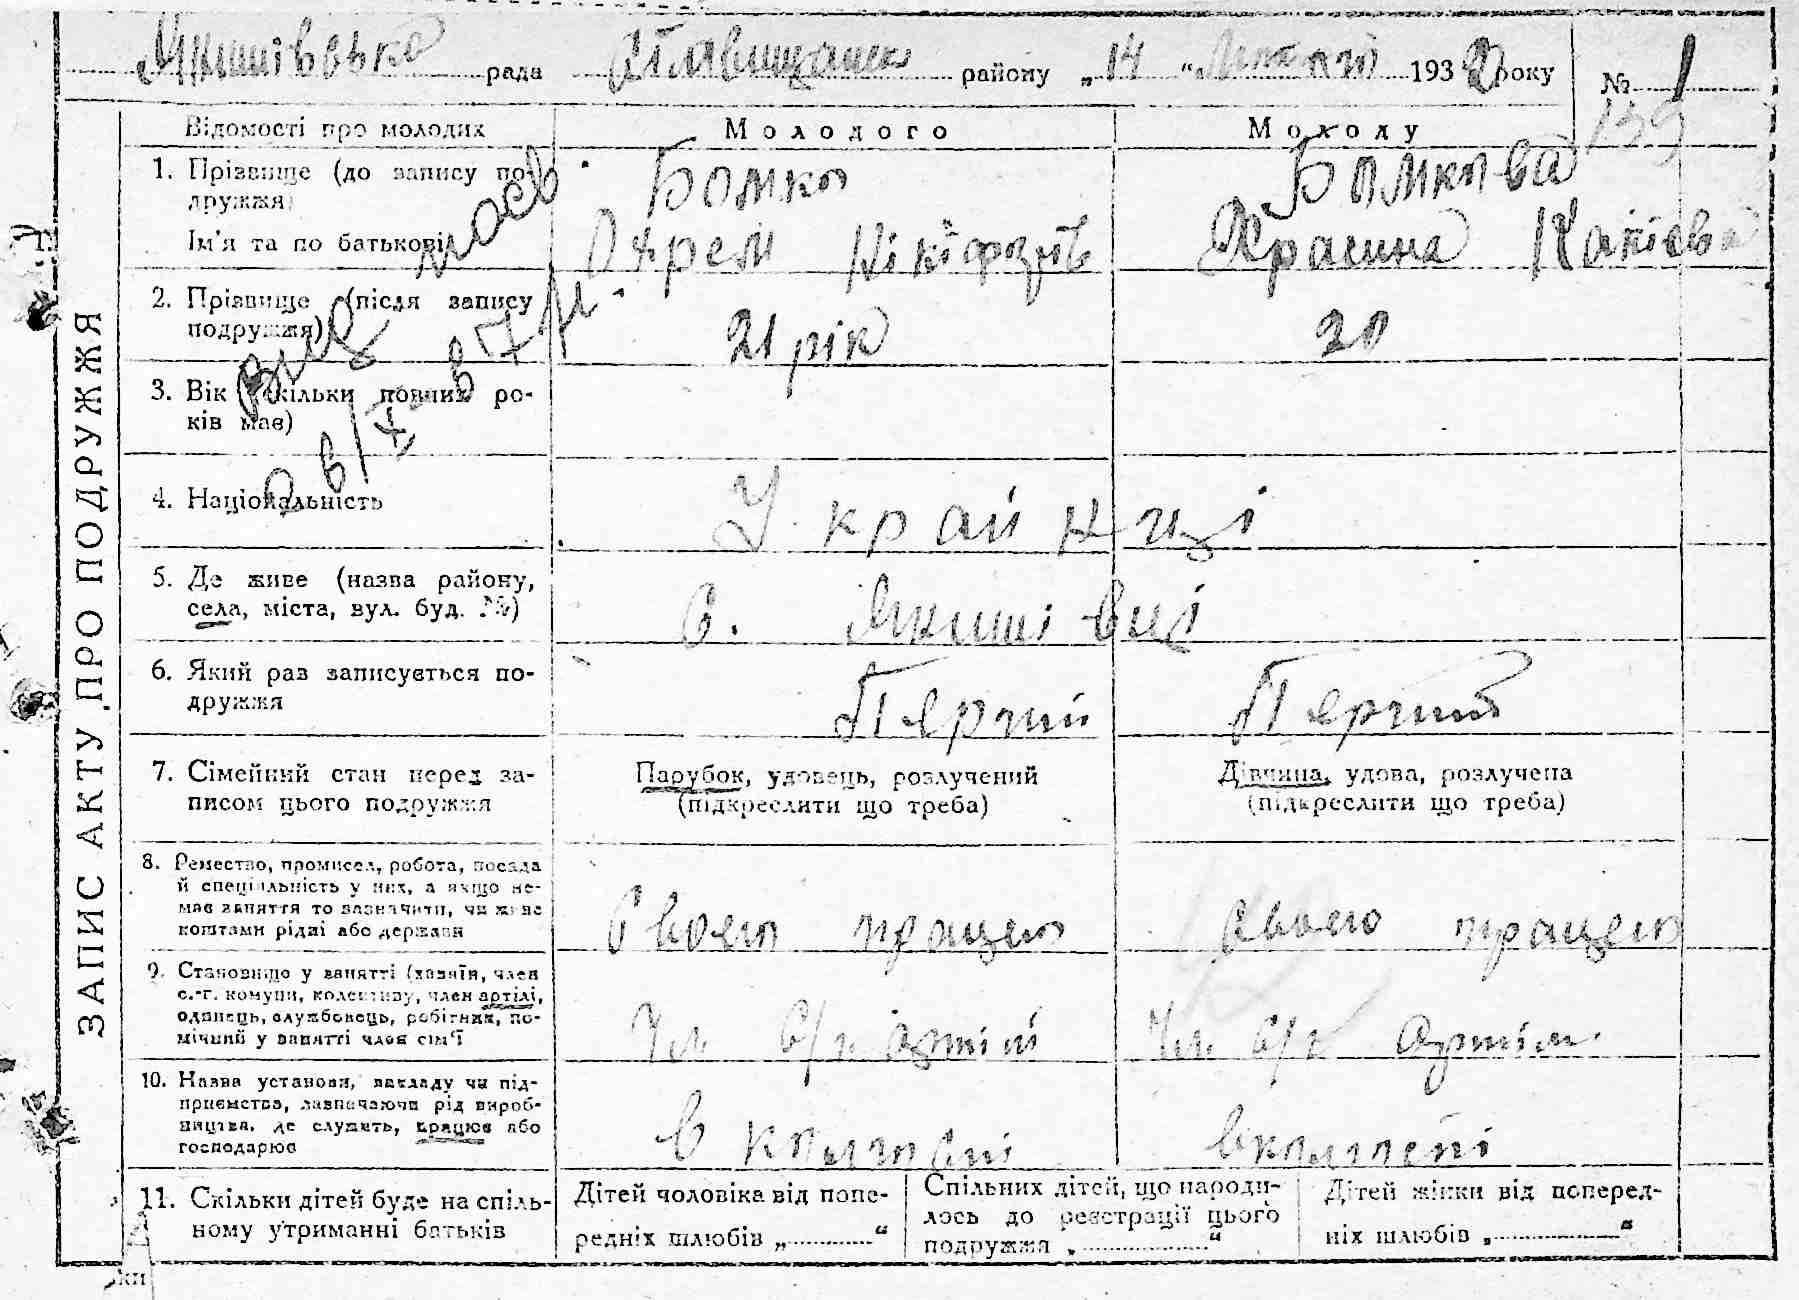 рада району „14“ 193 року № 1
139
ЗАПИС АКТУ ПРО ПОДРУЖЖЯ
Відомості про молодих Молодого Молоду
1. Прізвище (до запису по-
дружжя)
Бомко Бомкова
Ім'я та по батькові
Охрем
2. Прізвище (після запису
подружжя)
21 рік 20
3. Вік (скільки повних ро-
ків має)
4. Національність
Українці
5. Де живе (назва району,
села, міста, вул. буд. №)
с.
6. Який раз записується по-
дружжя
Перший Перший
7. Сімейний стан перед за-
писом цього подружжя
Парубок, удовець, розлучений
(підкреслити що треба)
Дівчина, удова, розлучена
(підкреслити що треба)
8. Ремество, промисел, робота, посада
й спеціяльність у них, а якщо не-
має заняття то зазначити, чи живе
коштами рідні або держави
Своею працею своею працею
9. Становище у занятті (хазяїн, член
с.-г. комуни, колективу, член артілі,
одинець, службовець, робітник, по-
мічний у занятті член сім'ї
Чл. с/г артілі Чл. с/г
10. Назва установи, закладу чи під-
приємства, зазначаючи рід вироб-
ництва, де служить, працює або
господарює
в колгоспі в колгоспі
11. Скільки дітей буде на спіль-
ному утриманні батьків
Дітей чоловіка від попе-
редніх шлюбів „ “
Спільних дітей, що народи-
лось до реєстрації цього
подружжя „ “
Дітей жінки від поперед-
ніх шлюбів „ “